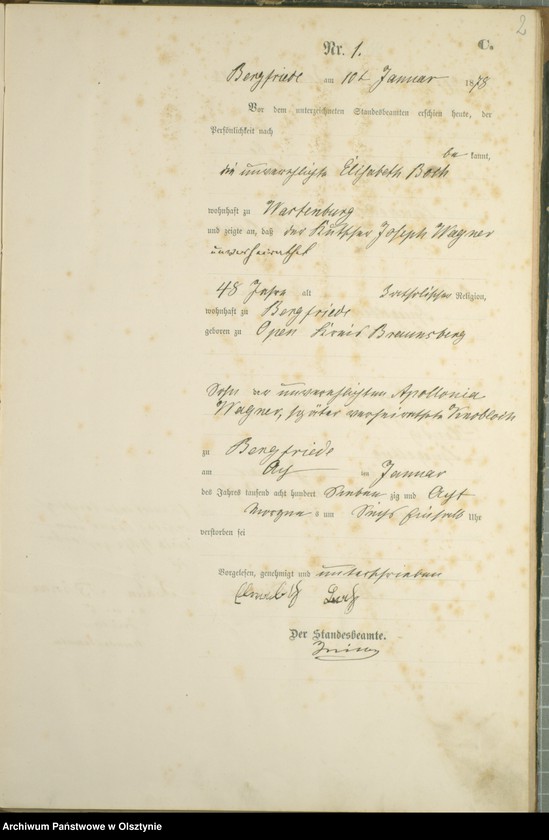 2
C.
Nr. 1.
Bergfriede am 10t Januar 1878
Vor dem unterzeichneten Standesbeamten erschien heute, der
Persönlichkeit nach
be kannt,
die unverehlichte Elisabeth Both
wohnhaft zu Wartenburg
und zeigte an, daß der Kutscher Joseph Wagner
unverheirathet
48 Jahre alt katholischer Religion,
wohnhaft zu Bergfriede
geboren zu Open Kreis Braunsberg
Sohn der unverehlichten Apollonia
Wagner, später verheirathete Knobloch
zu Bergfriede
am Acht im Januar
des Jahres tausend acht hundert Sieben zig und Acht
Morgens um Sechs Uhr
verstorben sei
Vorgelesen, genehmigt und unterschrieben
Der Standesbeamte.
Archiwum Państwowe w Olsztynie